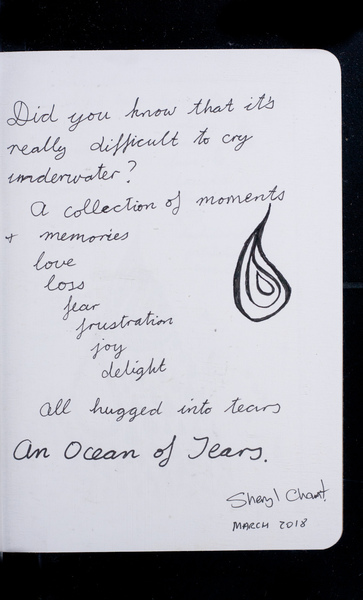 Did you know that it's
really difficult to cry
underwater?
A collection of moments
+ memories
love
loss
fear
frustration
joy
delight
All hugged into tears
An Ocean of Tears.
Sheryl Chant.
MARCH 2018